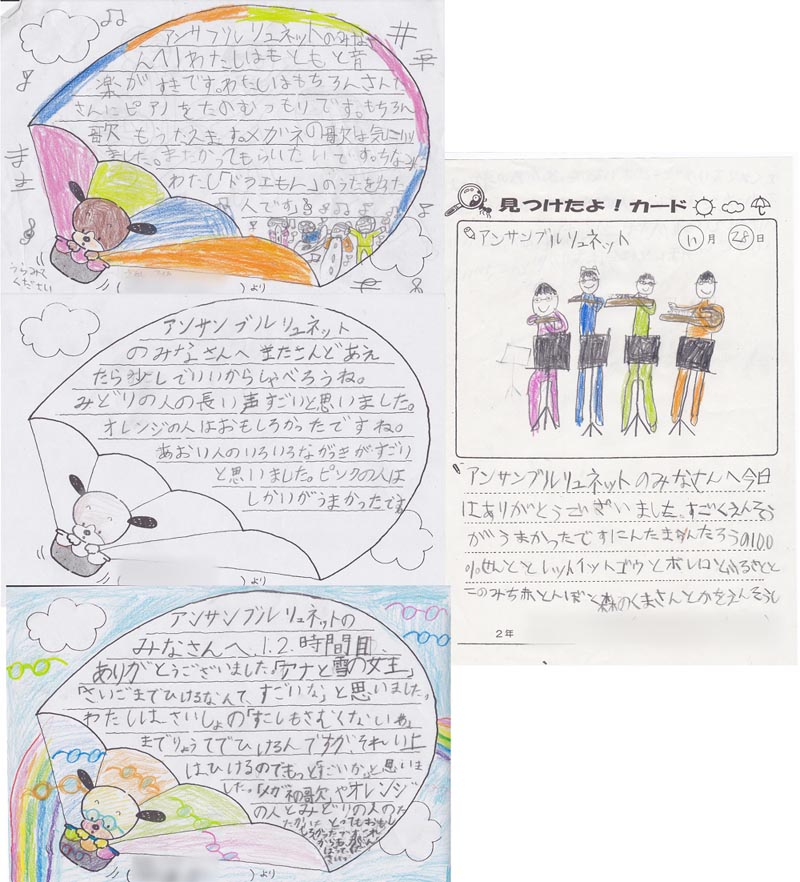 アンサブルリュネットのみな
んへ！わたしはもともと音
楽がすきです。わたしはもちろんさんた
さんにピアノをたのむつもりです。もちろん
歌もうたえます。メガネの歌は気にいり
ました。またがってもらいたいです。ちなみに
わたし「ドラエもん」のうたをうた
人です
うらみて
ください
より
アンサンブルリュネット
のみなさんへまたこんどあえ
たら少しでいいからしゃべろうね。
みどりの人の長い声すごいと思いました。
オレンジの人はおもしろかったですね。
あおい人のいろいろながっきがすごい
と思いました。ピンクの人は
しかいがうまかったです
より
アンサンブルリュネットの
みなさんへ、1.2.時間目、
ありがとうございました。「アナと雪の女王」
「さいごまでひけるなんて、すごいな」と思いました。
わたしは、さいしょの「すこしもさむくないわ」
までりょうてでひけるんですが、それい上
は、ひけるのでもっと「すごいな」と思いま
した。「メガネの歌」やオレンジ
の人とみどりの人のた
たかいが とってもおもし
ろかったです。これ
からも、がん
ばって、くだ
さいっ
より
見つけたよ！カード
アンサンブルリュネット 11月28日
アンサンブルリュネットのみなさんへ今日
はありがとうございました、すごくえんそう
がうまかったですにんたまらんたろうの100
%せんととレットイットゴウとボレロとふるさとと
このみち赤とんぼと森のくまさんとかをえんそうし
2年